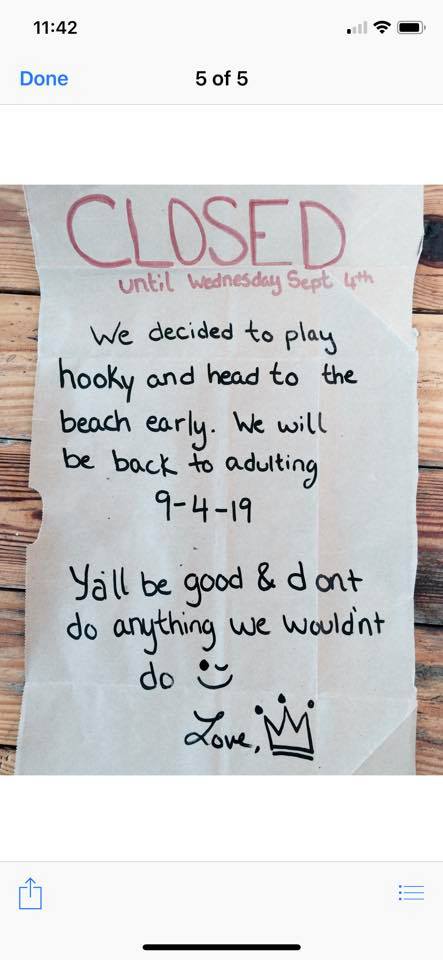 11:42
Done
5 of 5
CLOSED
until Wednesday Sept 4th
We decided to play
hooky and head to the
beach early. We will
be back to adulting
9-4-19
Ya'll be good & dont
do anything we would'nt
do
Love,